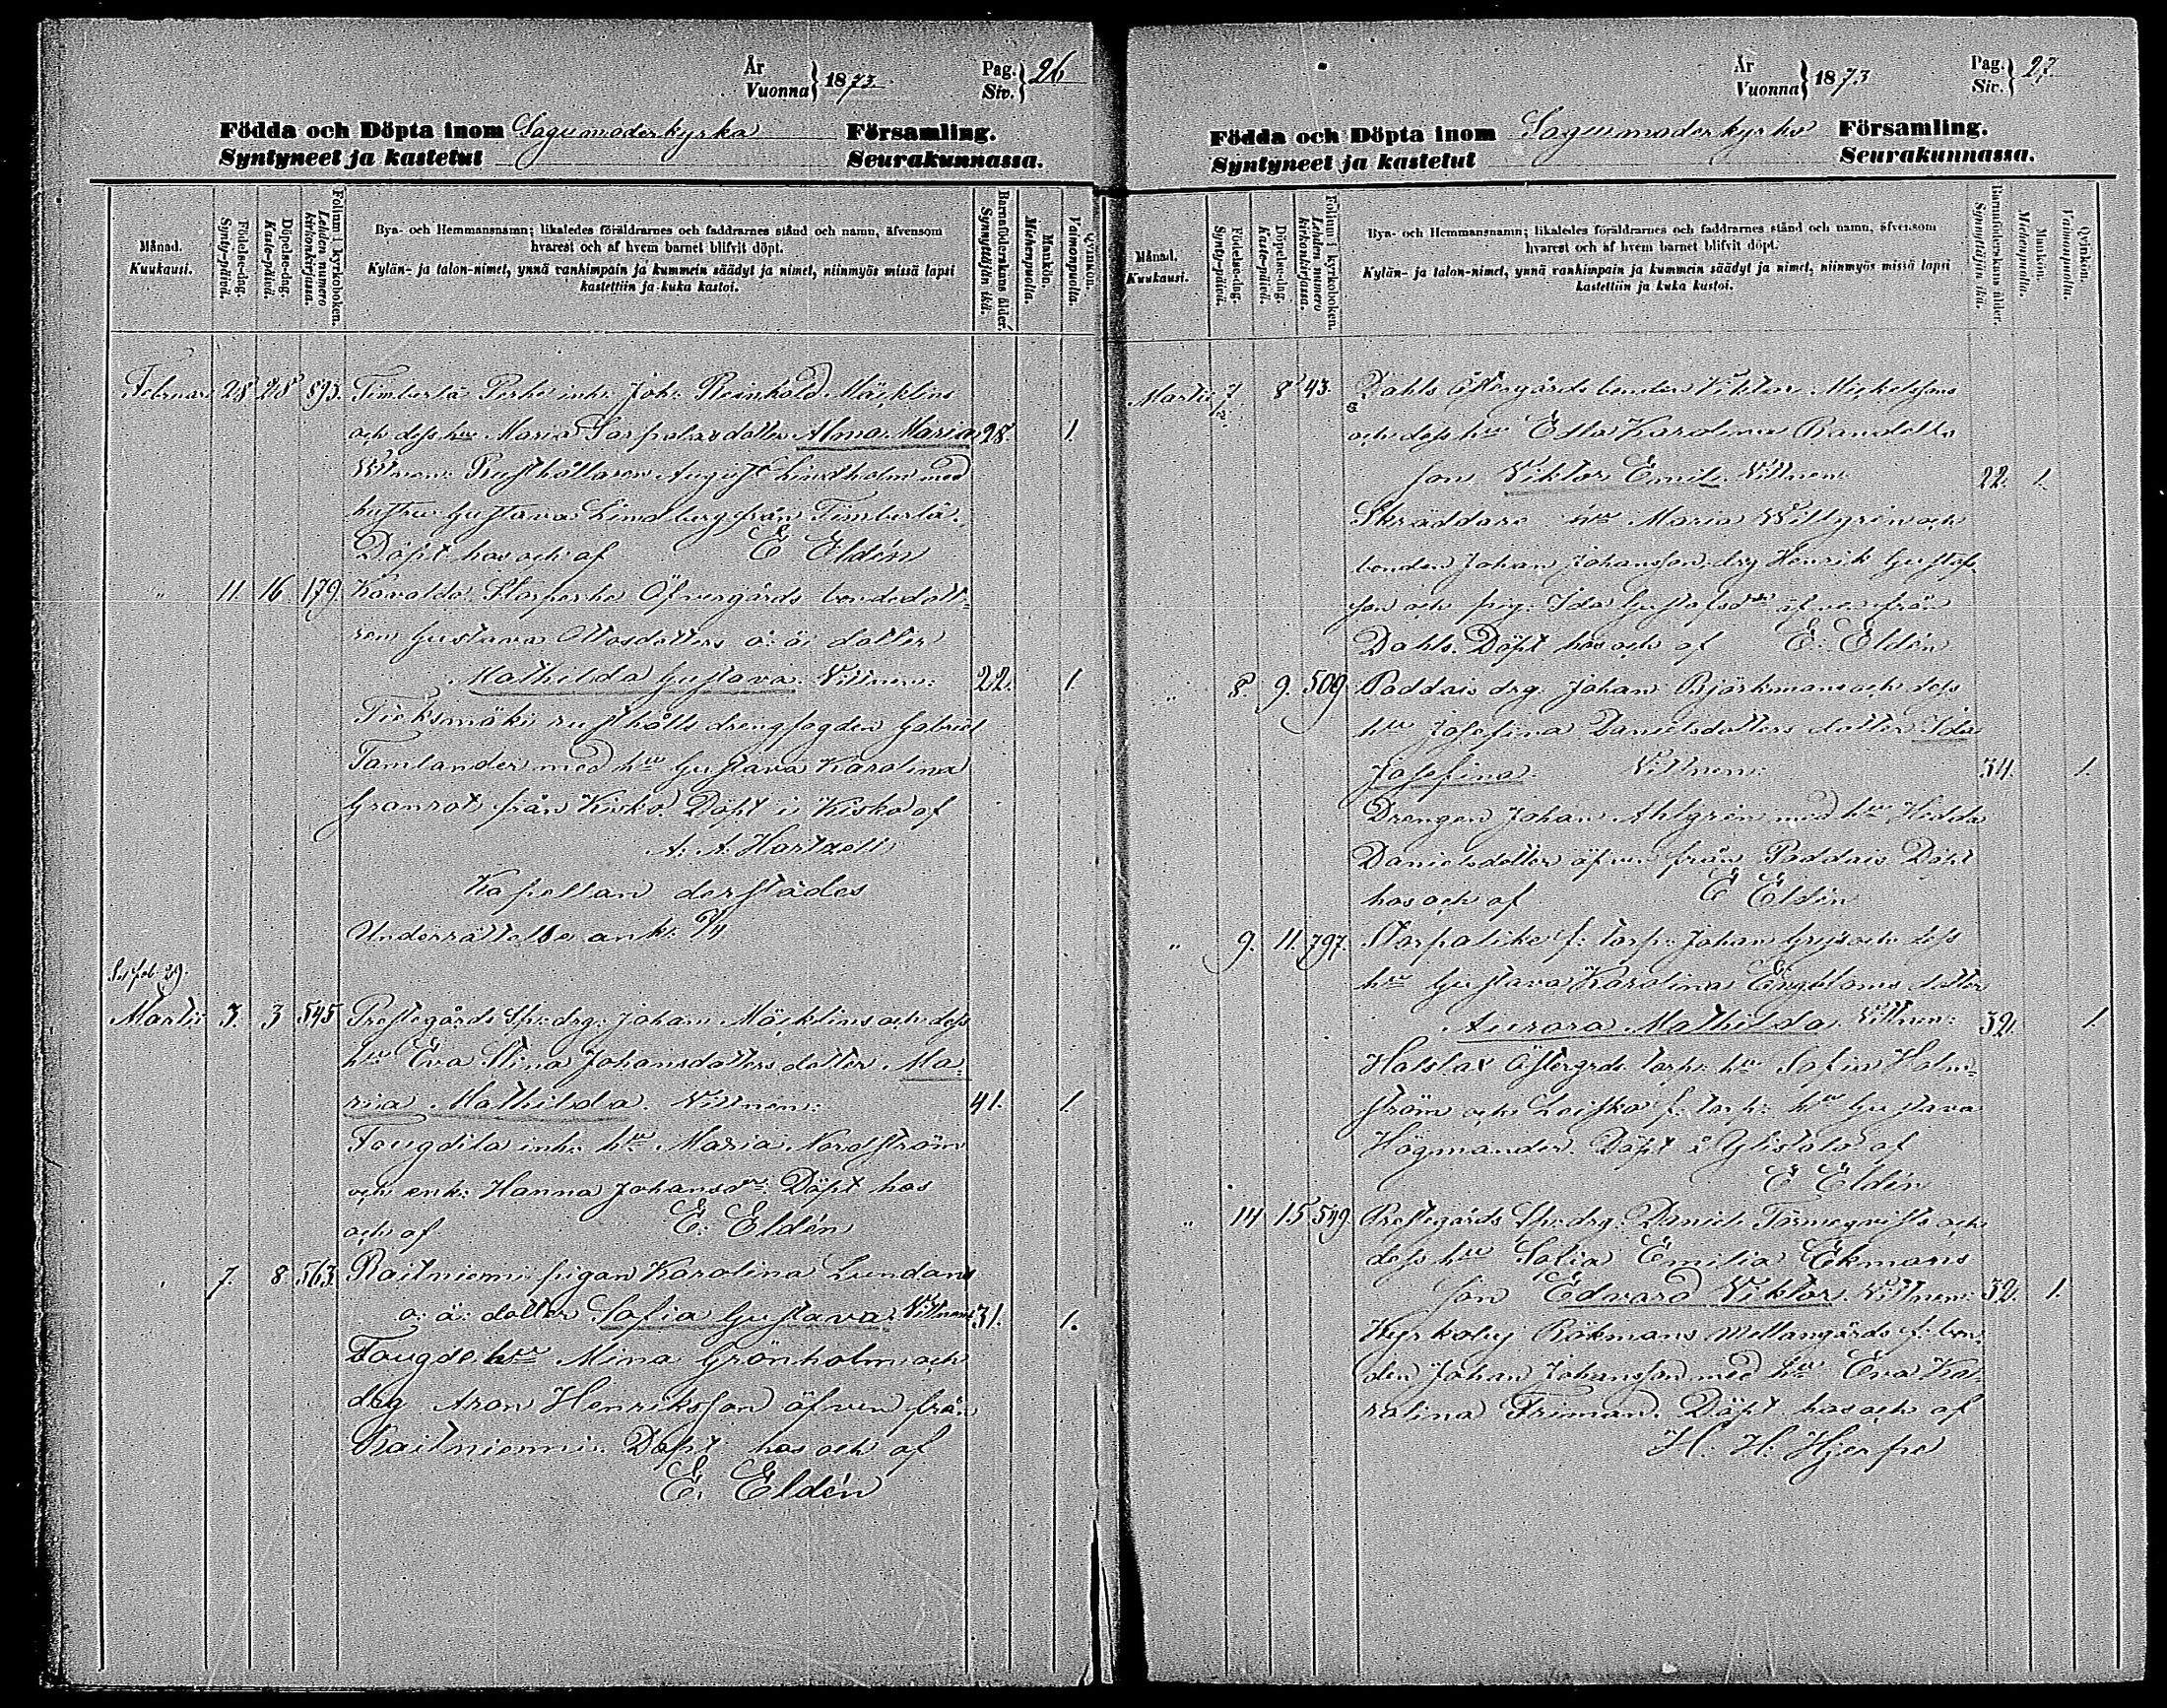 År
Vuonna } 1873. Pag.
Siv. } 26
Födda och Döpta inom Sagumoderkyrka Församling.
Syntyneet ja kastetut Seurakunnassa.
Månad.
Kuukausi.
Födelse-dag.
Synty-päivä.
Döpelse-dag.
Kaste-päivä.
Folium i kyrkoboken.
Lehden numero
kirkonkirjassa.
Bya- och Hemmansnamn; likaledes föräldrarnes och faddrarnes stånd och namn, äfvensom
hvarest och af hvem barnet blifvit döpt.
Kylän- ja talon-nimet, ynnä vanhimpain ja kummein säädyt ja nimet, niinmyös missä lapsi
kastettiin ja kuka kastoi.
Barnaföderskans ålder.
Synnyttäjän ikä.
Mankön.
Miehenpuolia.
Qvinkön.
Vaimonpuolia.
Februar. 28 28 893. Timberlä Perhe inh. Joh. Reinhold Mäcklins
och dess hu Maria dotter Alma Maria 28. 1.
Vittnen: Rusthållaren August Lindholm med
hustru Gustava Lindberg från Timberlä.
Döpt hos och af E Eldén
" 11. 16. 179. Storperhe Öfvergårds bondedott-
ren Gustava Ottosdotters o: ä: dotter
Mathilda Gustava. Vittnen: 22. 1.
rusthålls drengfogden Gabriel
Tamlander med hu Gustava Karolina
Granrot från Kisko. Döpt i Kisko af
A. A. Hartzell
Kapellan derstädes
Underrättelse ank.
Martii 3. 3 545 Prestegårds drg. Johan Mäcklins och dess
hu Eva Stina Johansdotters dotter Ma-
ria Mathilda. Vittnen: 41. 1.
inh. hu Maria Nordström
och enk. Hanna Johansdr. Döpt hos
och af E. Eldén
" 7. 8 563. Raitniemi pigan Karolina Lundans
o: ä: dotter Sofia Gustava. Vittnen: 31. 1.
hu Mina Grönholm och
drg Aron Henriksson äfven från
Raitniemi. Döpt hos och af
E. Eldén
År
Vuonna } 1873 Pag.
Siv. } 27
Födda och Döpta inom Sagumoderkyrko Församling.
Syntyneet ja kastetut Seurakunnassa.
Månad.
Kuukausi.
Födelse-dag.
Synty-päivä.
Döpelse-dag.
Kaste-päivä.
Folium i kyrkoboken.
Lehden numero
kirkonkirjassa.
Bya- och Hemmansnamn; likaledes föräldrarnes och faddrarnes stånd och namn, äfvensom
hvarest och af hvem barnet blifvit döpt.
Kylän- ja talon-nimet, ynnä vanhimpain ja kummein säädyt ja nimet, niinmyös missä lapsi
kastettiin ja kuka kastoi.
Barnaföderskans ålder.
Synnyttäjän ikä.
Mankön.
Miehenpuolia.
Qvinkön.
Vaimonpuolia.
Martii 7 8 43. Dahls Östergårds bonden Viktor Mickelssons
och dess hu Karolina Randells
son Viktor Emil. Vittnen: 22. 1.
Skräddare hu Maria Willgrén och
bonden Johan Johansson, drg Henrik Gustafs-
son och pig. Ida Gustafsdr äfven från
Dahls. Döpt hos och af E. Eldén
" 8 9. 509 Paddais drg. Johan Björkmans och dess
hu Josefina Danielsdotters dotter Ida
Josefina. Vittnen: 34. 1.
Drengen Johan Ahlgrén med hu Hedda
Danielsdotter äfven från Paddais Döpt
hos och af E Eldén
" 9. 11. 797. Storpalike f: torp: Johan och dess
hu Gustava Karolina Engbloms dotter
Aurora Mathilda. Vittnen: 32. 1.
Halslax Östergrds torp. hu Sofia Holm-
ström och f. torp. hu Gustava
Högmander. Döpt å af
E Eldén
" 14 15 549 Prestegårds drg. Daniel Törneqvists och
dess hu Sofia Emilia Ekmans
son Edvard Viktor. Vittnen: 32. 1.
Kyrkoby Rökmans Mellangårds f: bon-
den Johan Johansson med hu Eva Ka-
rolina Friman. Döpt hos och af
H. H. Hjerpe